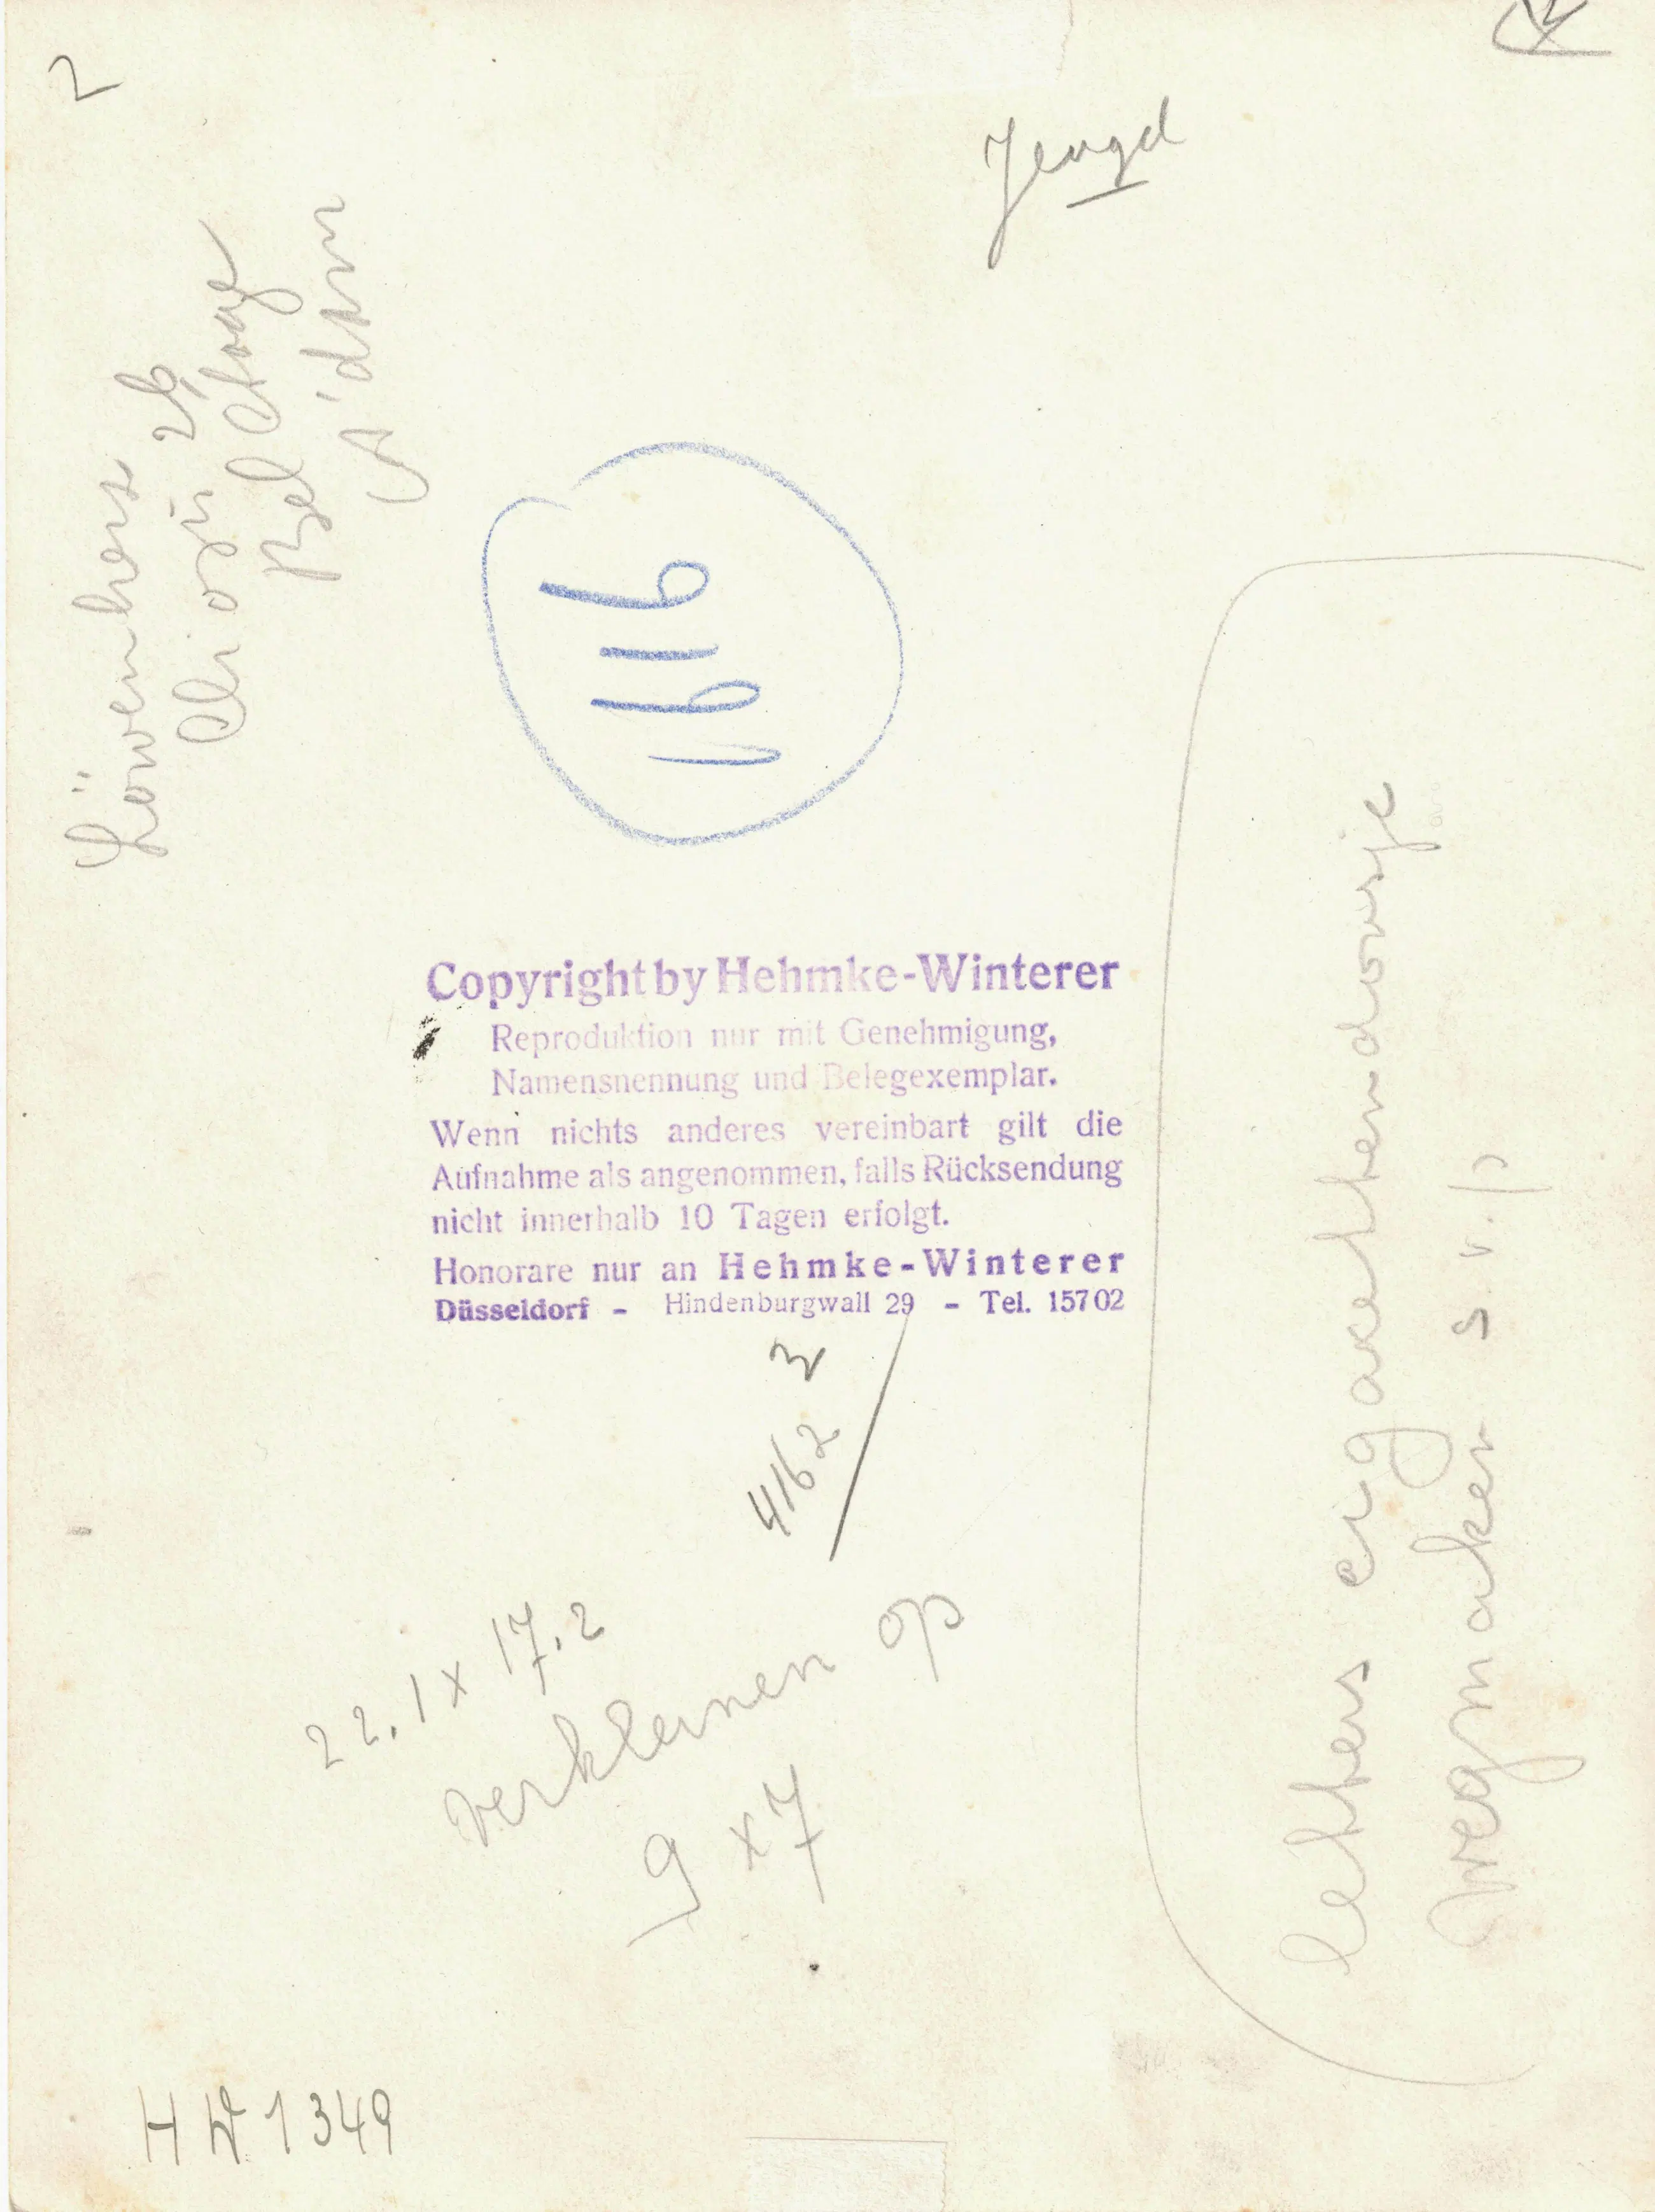 2
Jeugd
Löwenherz 26
Copyright by Hehmke-Winterer
Reproduktion nur mit Genehmigung,
Namensnennung und Belegexemplar.
Wenn nichts anderes vereinbart gilt die
Aufnahme als angenommen, falls Rücksendung
nicht innerhalb 10 Tagen erfolgt.
Honorare nur an Hehmke-Winterer
Düsseldorf - Hindenburgwall 29 - Tel. 15702
4162
3
22.1 x 17.2
verkleinen op
9 x 7
letters cigarettendoosje
wegmaken s.v.p
A'dam
H W 1349